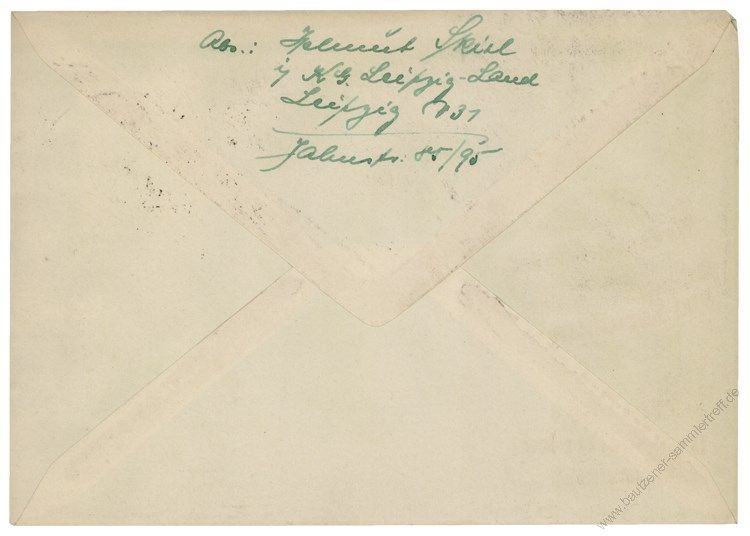 Abs.: Helmut Skirl
i/ KG. Leipzig-Land
Leipzig W31
Jahnstr. 85/95
www.bautzener-sammlertreff.de